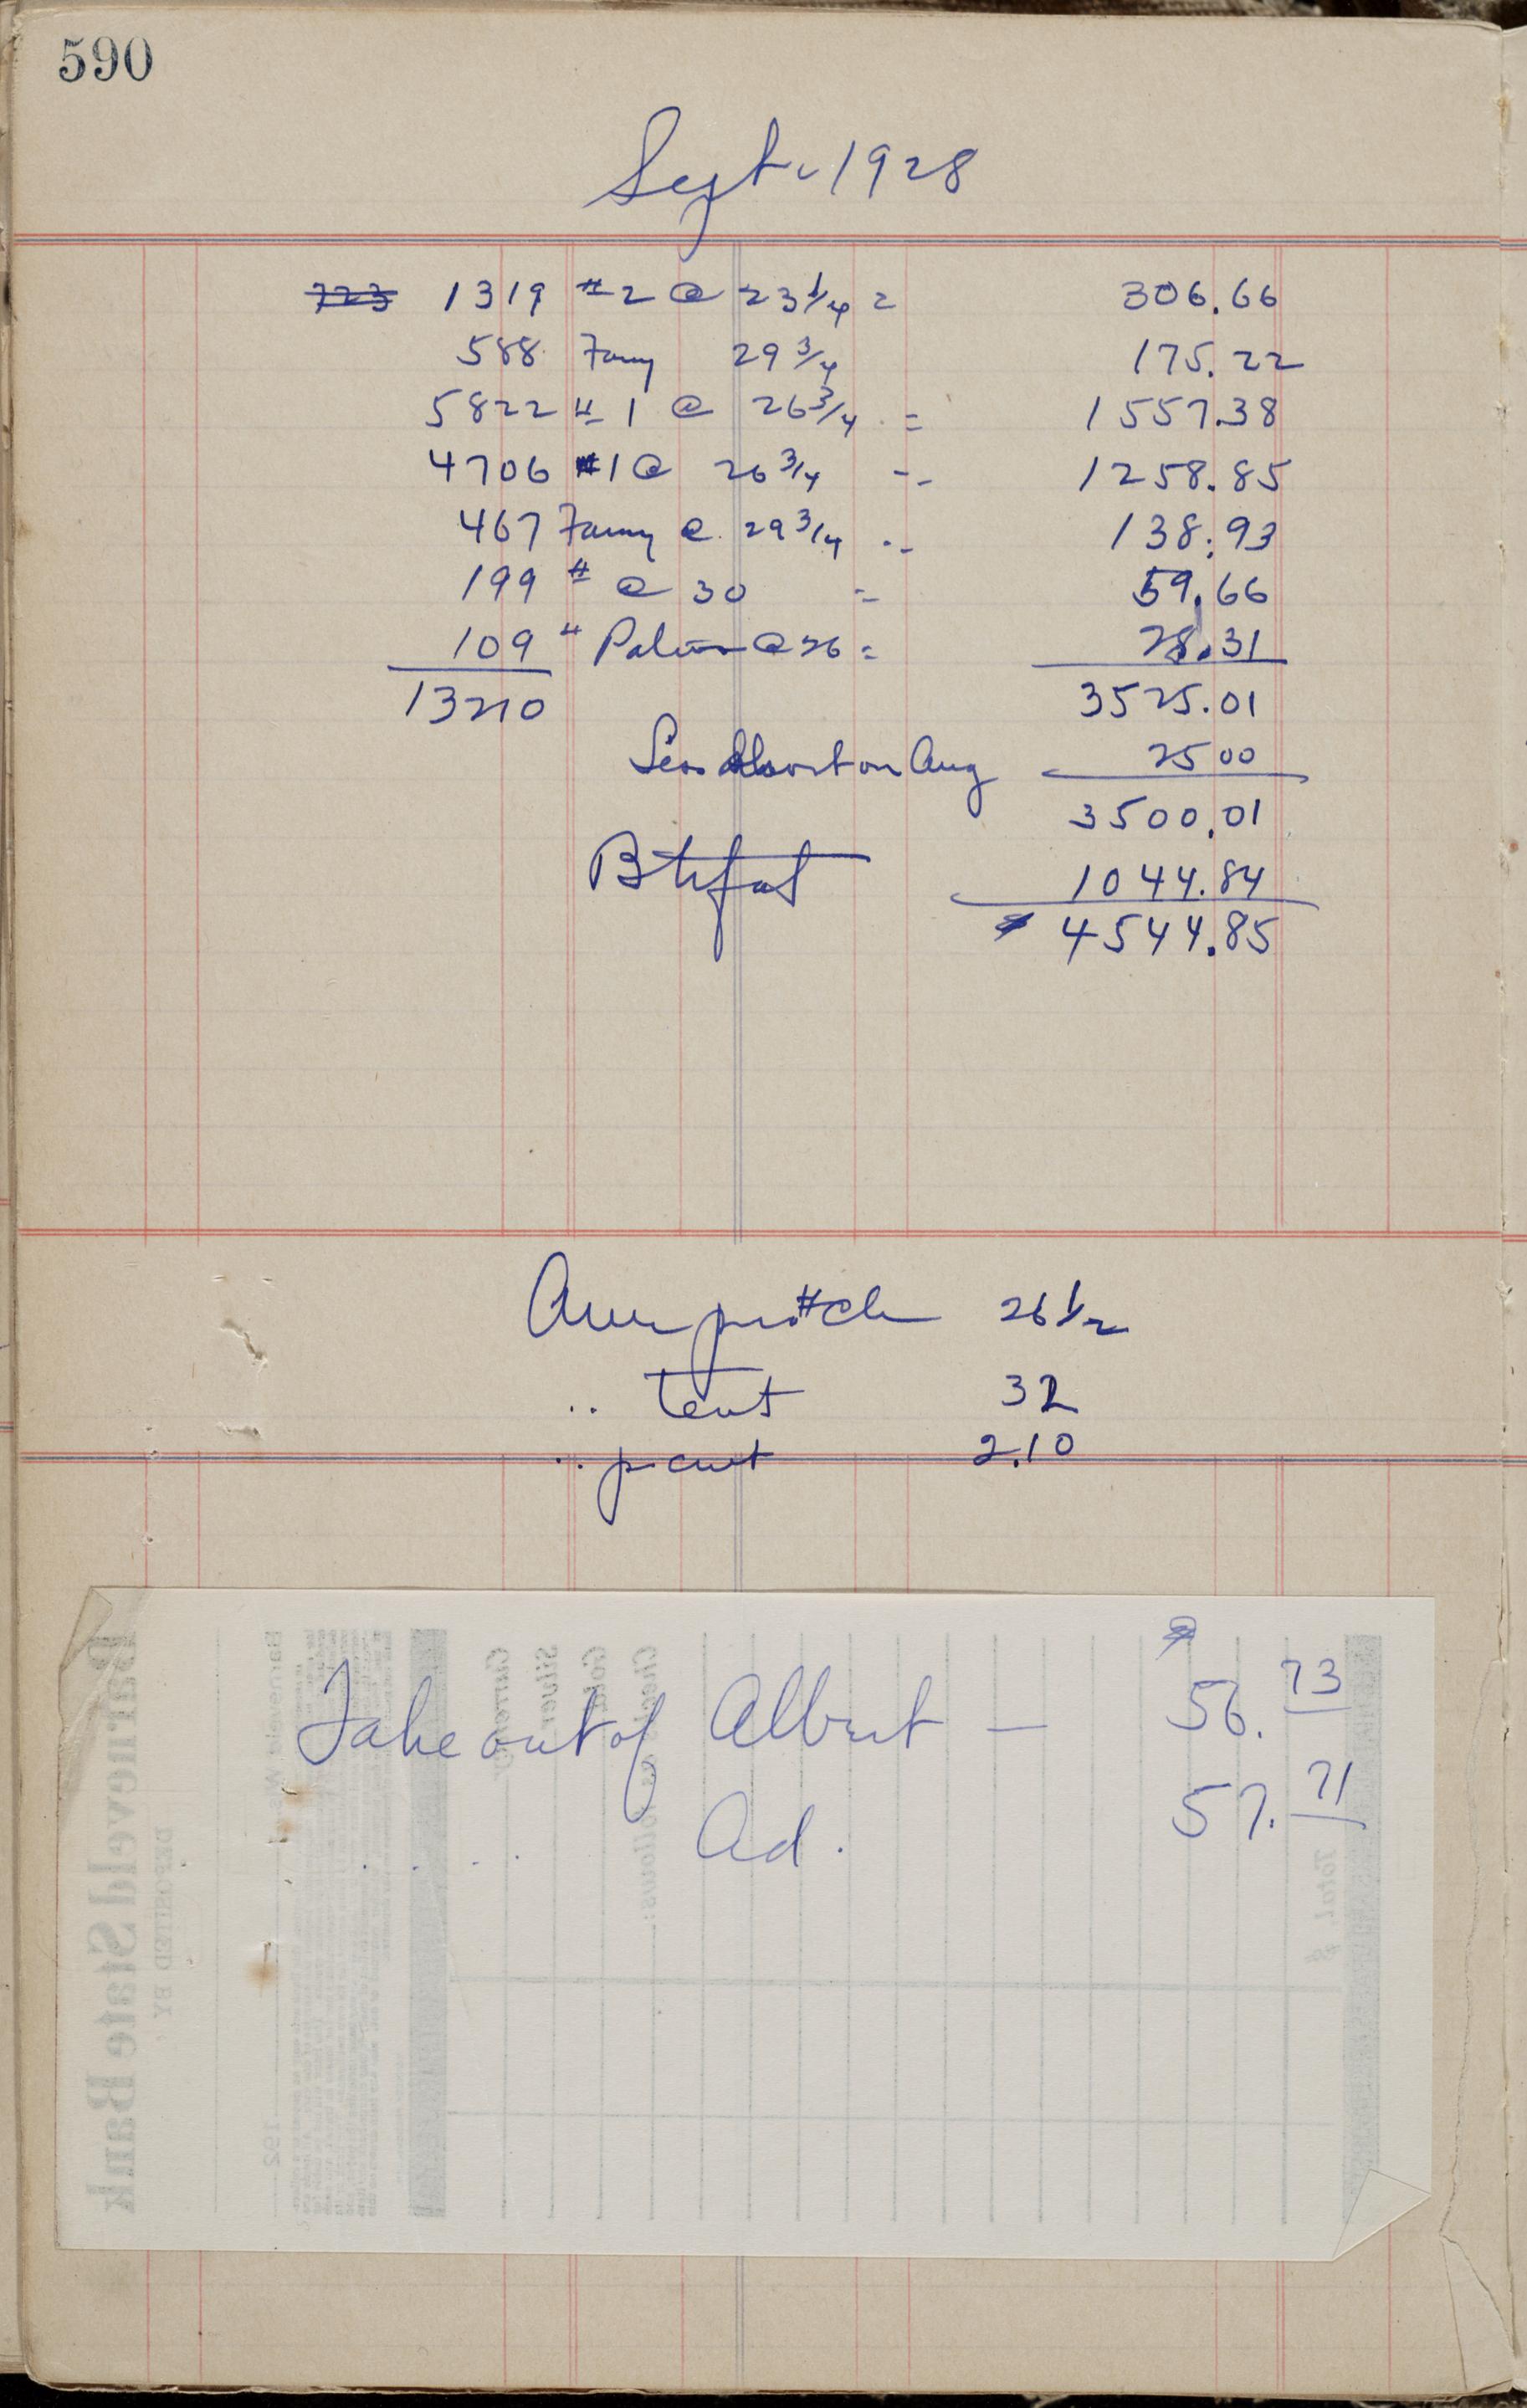 590
Sept. 1928
723 1319 #2 @ 23 1/4 = 306.66
588 Fancy 29 3/4 175.22
5822 # 1 @ 26 3/4 = 1557.38
4706 #1 @ 26 3/4 -- 1258.85
467 Fancy @ 29 3/4 -- 138.93
199 # @ 30 = 59.66
109 " @ 26 = 28.31
13210 3525.01
Less short on Aug 25 00
3500.01
Btrfat 1044.84
$ 4544.85
Aver pr # ch 26 1/2
.. Test 32
.. p cwt 2.10
Take out of Albert — $ 56.73
. . . . Ad. 57.71
Barneveld State Bank
DEPOSITED BY
192
Currency
Silver
Gold
Checks as follows:
Total, $